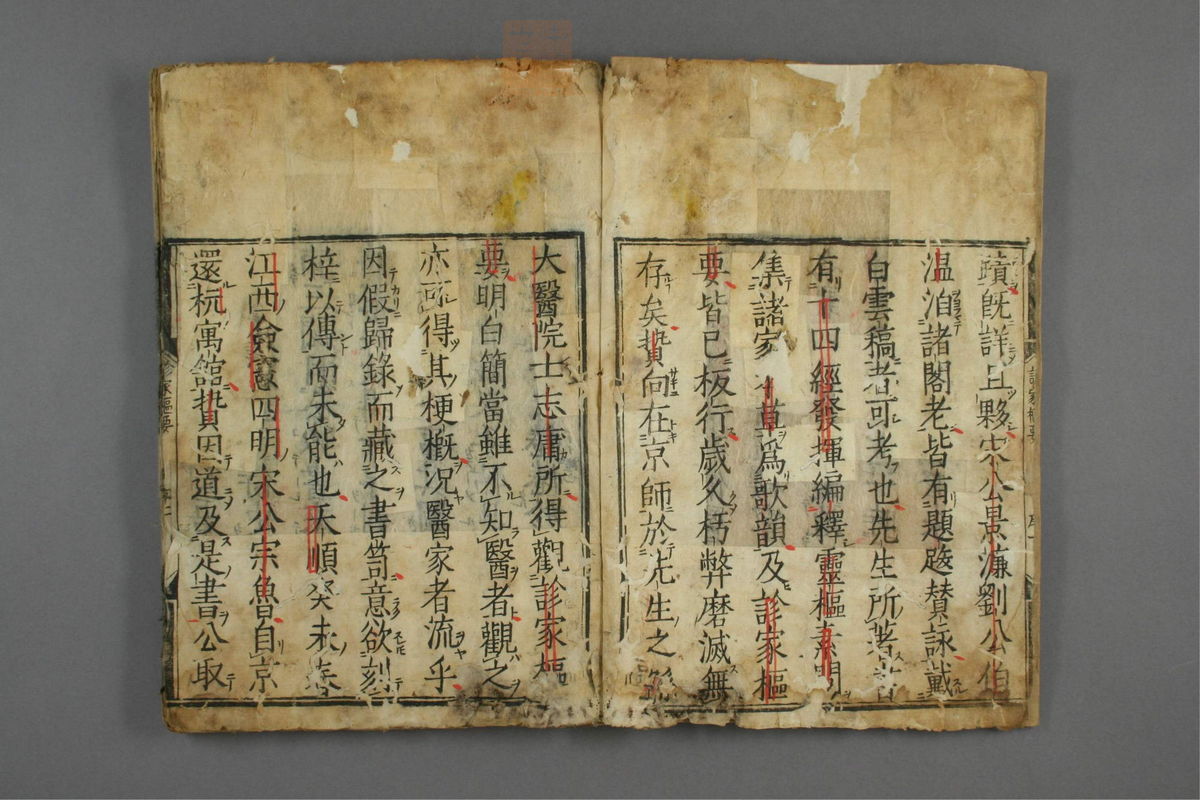 蹟既詳且夥宋公景濂劉公伯
温洎諸閣老皆有題跋賛詠載
白雲稿者可考也先生所著
有十四經發揮編釋靈樞素明
集諸家 草爲歌韻及診家樞
要皆已板行歲久朽弊磨滅無
存矣贄向在京師於先生之
大醫院士志庸所得觀診家樞
要明白簡當雖不知醫者觀之
亦可得其梗概況醫家者流乎
因假歸錄而藏之書笥意欲刻
梓以傳而未能也天順癸未春
江西僉憲四明宋公宗魯自京
還杭寓舘贄因道及是書公取
診家樞要